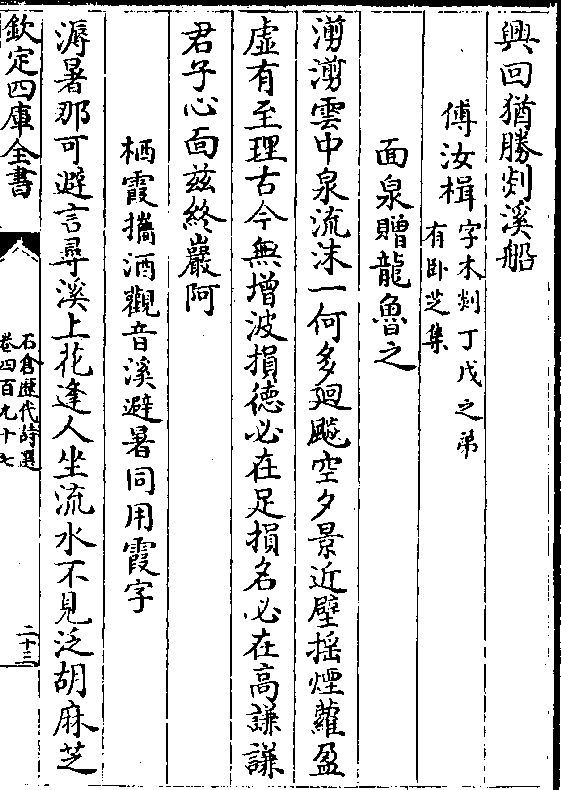 興回猶勝剡溪船
傅汝楫字木剡丁戊之弟
有卧芝集
面泉贈龍魯之
湧湧雲中泉流沫一何多廻飈空夕景近壁揺煙蘿盈
虚有至理古今無增波損徳必在足損名必在高謙謙
君子心面兹終巖阿
栖霞攜酒觀音溪避暑同用霞字
溽暑那可避言尋溪上花逢人坐流水不見泛胡麻芝
欽定四庫全書
石倉歴代詩選
卷四百九十七
二十三